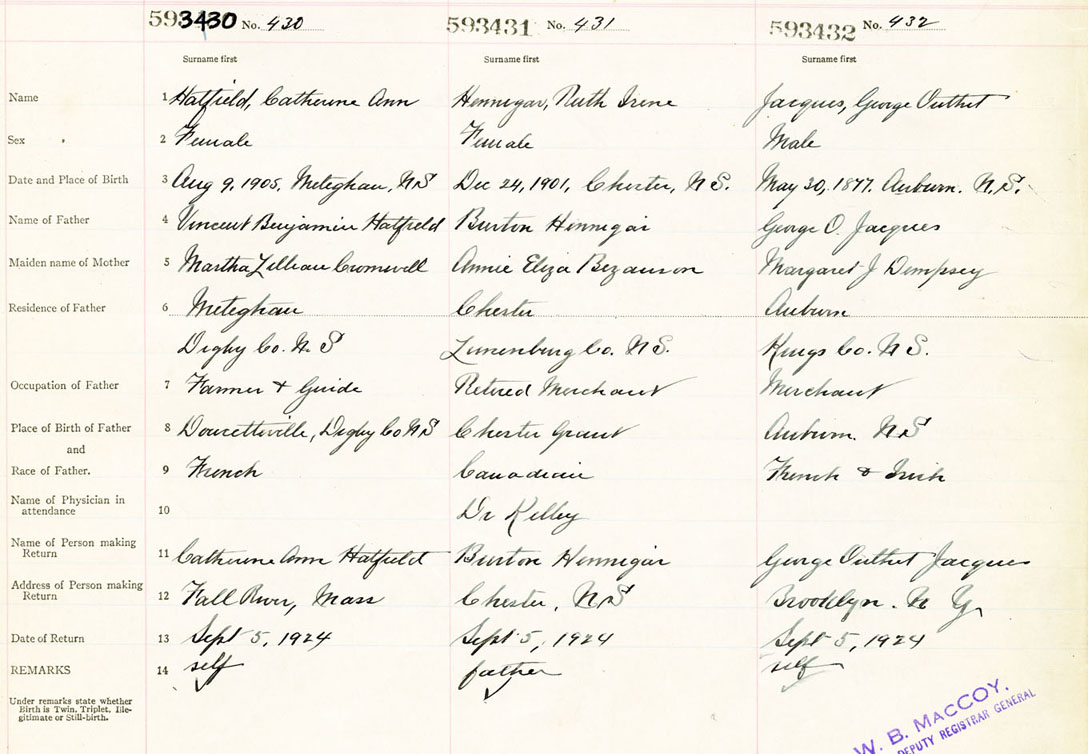 593430 No. 430 593431 No. 431 593432 No. 432
Surname first Surname first Surname first
Name 1 Hatfield, Catherine Ann Hennigar, Ruth Irene Jacques, George Outhit
Sex 2 Female Female Male
Date and Place of Birth 3 Aug 9, 1905, Meteghan, N S Dec 24, 1901, Chester, N S. May 30, 1877. Auburn. N. S.
Name of Father 4 Vincent Benjamin Hatfield Burton Hennigar George O. Jacques
Maiden name of Mother 5 Martha Lillian Cromwell Annie Eliza Bezanson Margaret J Dempsey
Residence of Father 6 Meteghan Chester Auburn
Digby Co. N. S Lunenburg Co. N S. Kings Co. N S.
Occupation of Father 7 Farmer & Guide Retired Merchant Merchant
Place of Birth of Father 8 Doucetteville, Digby Co N S Chester Grant Auburn. N S
and
Race of Father. 9 French Canadian French & Irish
Name of Physician in
attendance 10 Dr Kelley
Name of Person making
Return 11 Catherine Ann Hatfield Burton Hennigar George Outhit Jacques
Address of Person making
Return 12 Fall River, Mass Chester, N S Brooklyn. N. Y,
Date of Return 13 Sept 5, 1924 Sept 5, 1924 Sept 5, 1924
REMARKS 14 self father self
Under remarks state whether
Birth is Twin, Triplet, Ille-
gitimate or Still-birth.
W. B. MACCOY.
DEPUTY REGISTRAR GENERAL